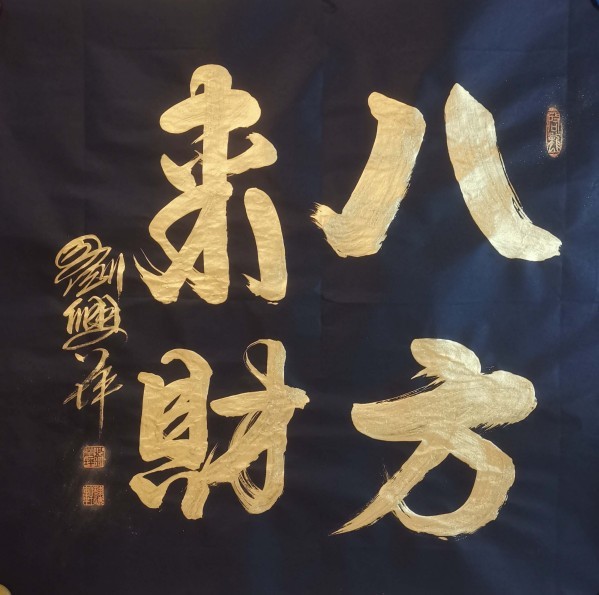 八方
来財
劉興祥